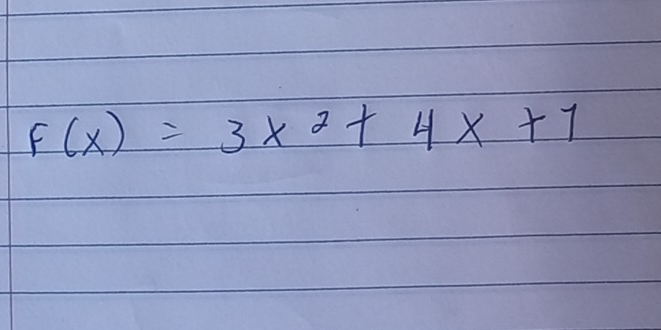 F(x) = 3x² + 4x + 1